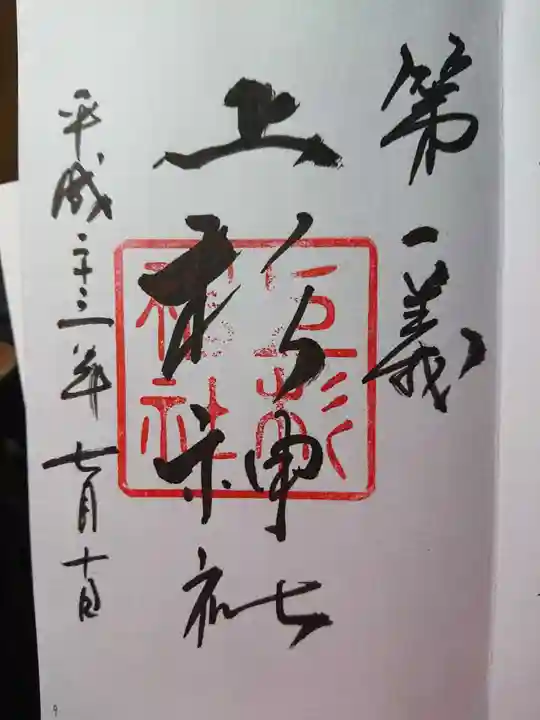 第一義
上杉神社
上杉神社
平成二十三年七月十日
9